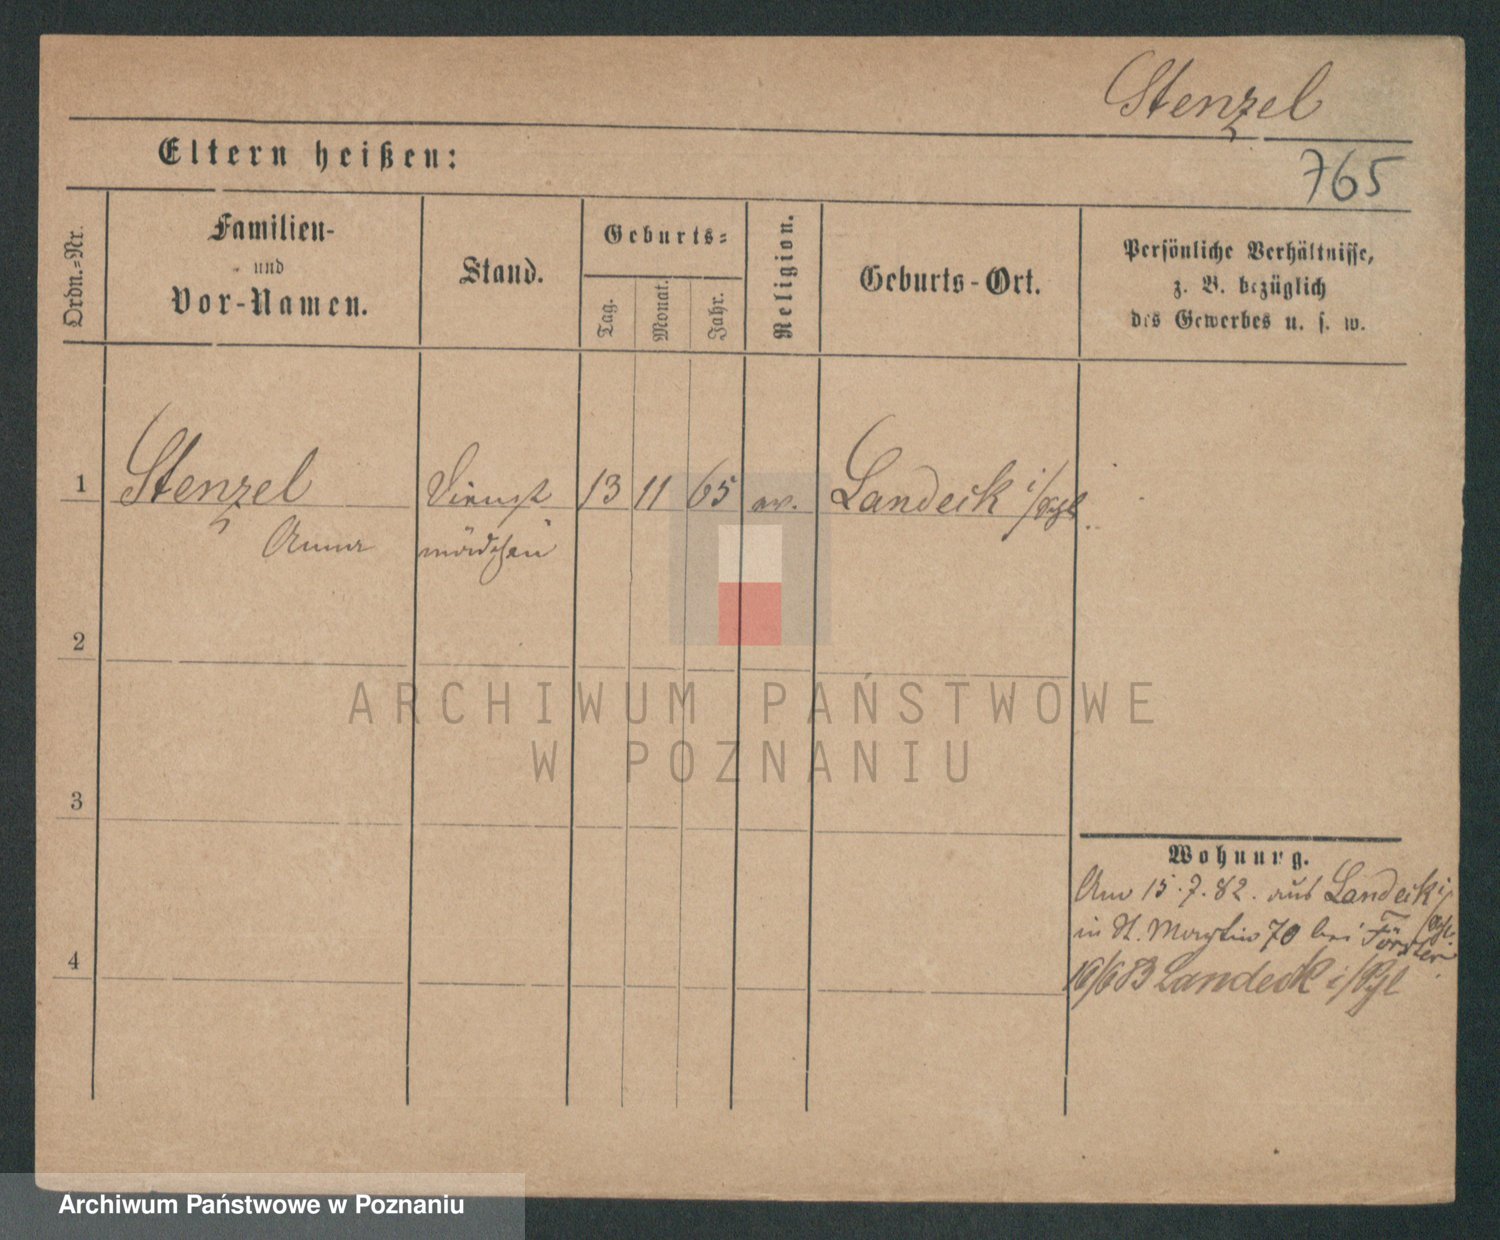 Stenzel
Eltern heißen:
765
Ordn.-Nr.
Familien-
und
Vor-Namen.
Stand.
Geburts-
Tag.
Monat.
Jahr.
Religion.
Geburts-Ort.
Persönliche Verhältnisse,
z. B. bezüglich
des Gewerbes u. s. w.
1
Stenzel
Anna
Dienst
mädchen
13 11 65 ev. Landeck i/Schl
2
ARCHIWUM PAŃSTWOWE
W POZNANIU
3
Wohnung.
Am 15.7.82. aus Landeck i/
in St. Martin 70 bei Förster
4
19/6 83 Landeck i/
Archiwum Państwowe w Poznaniu